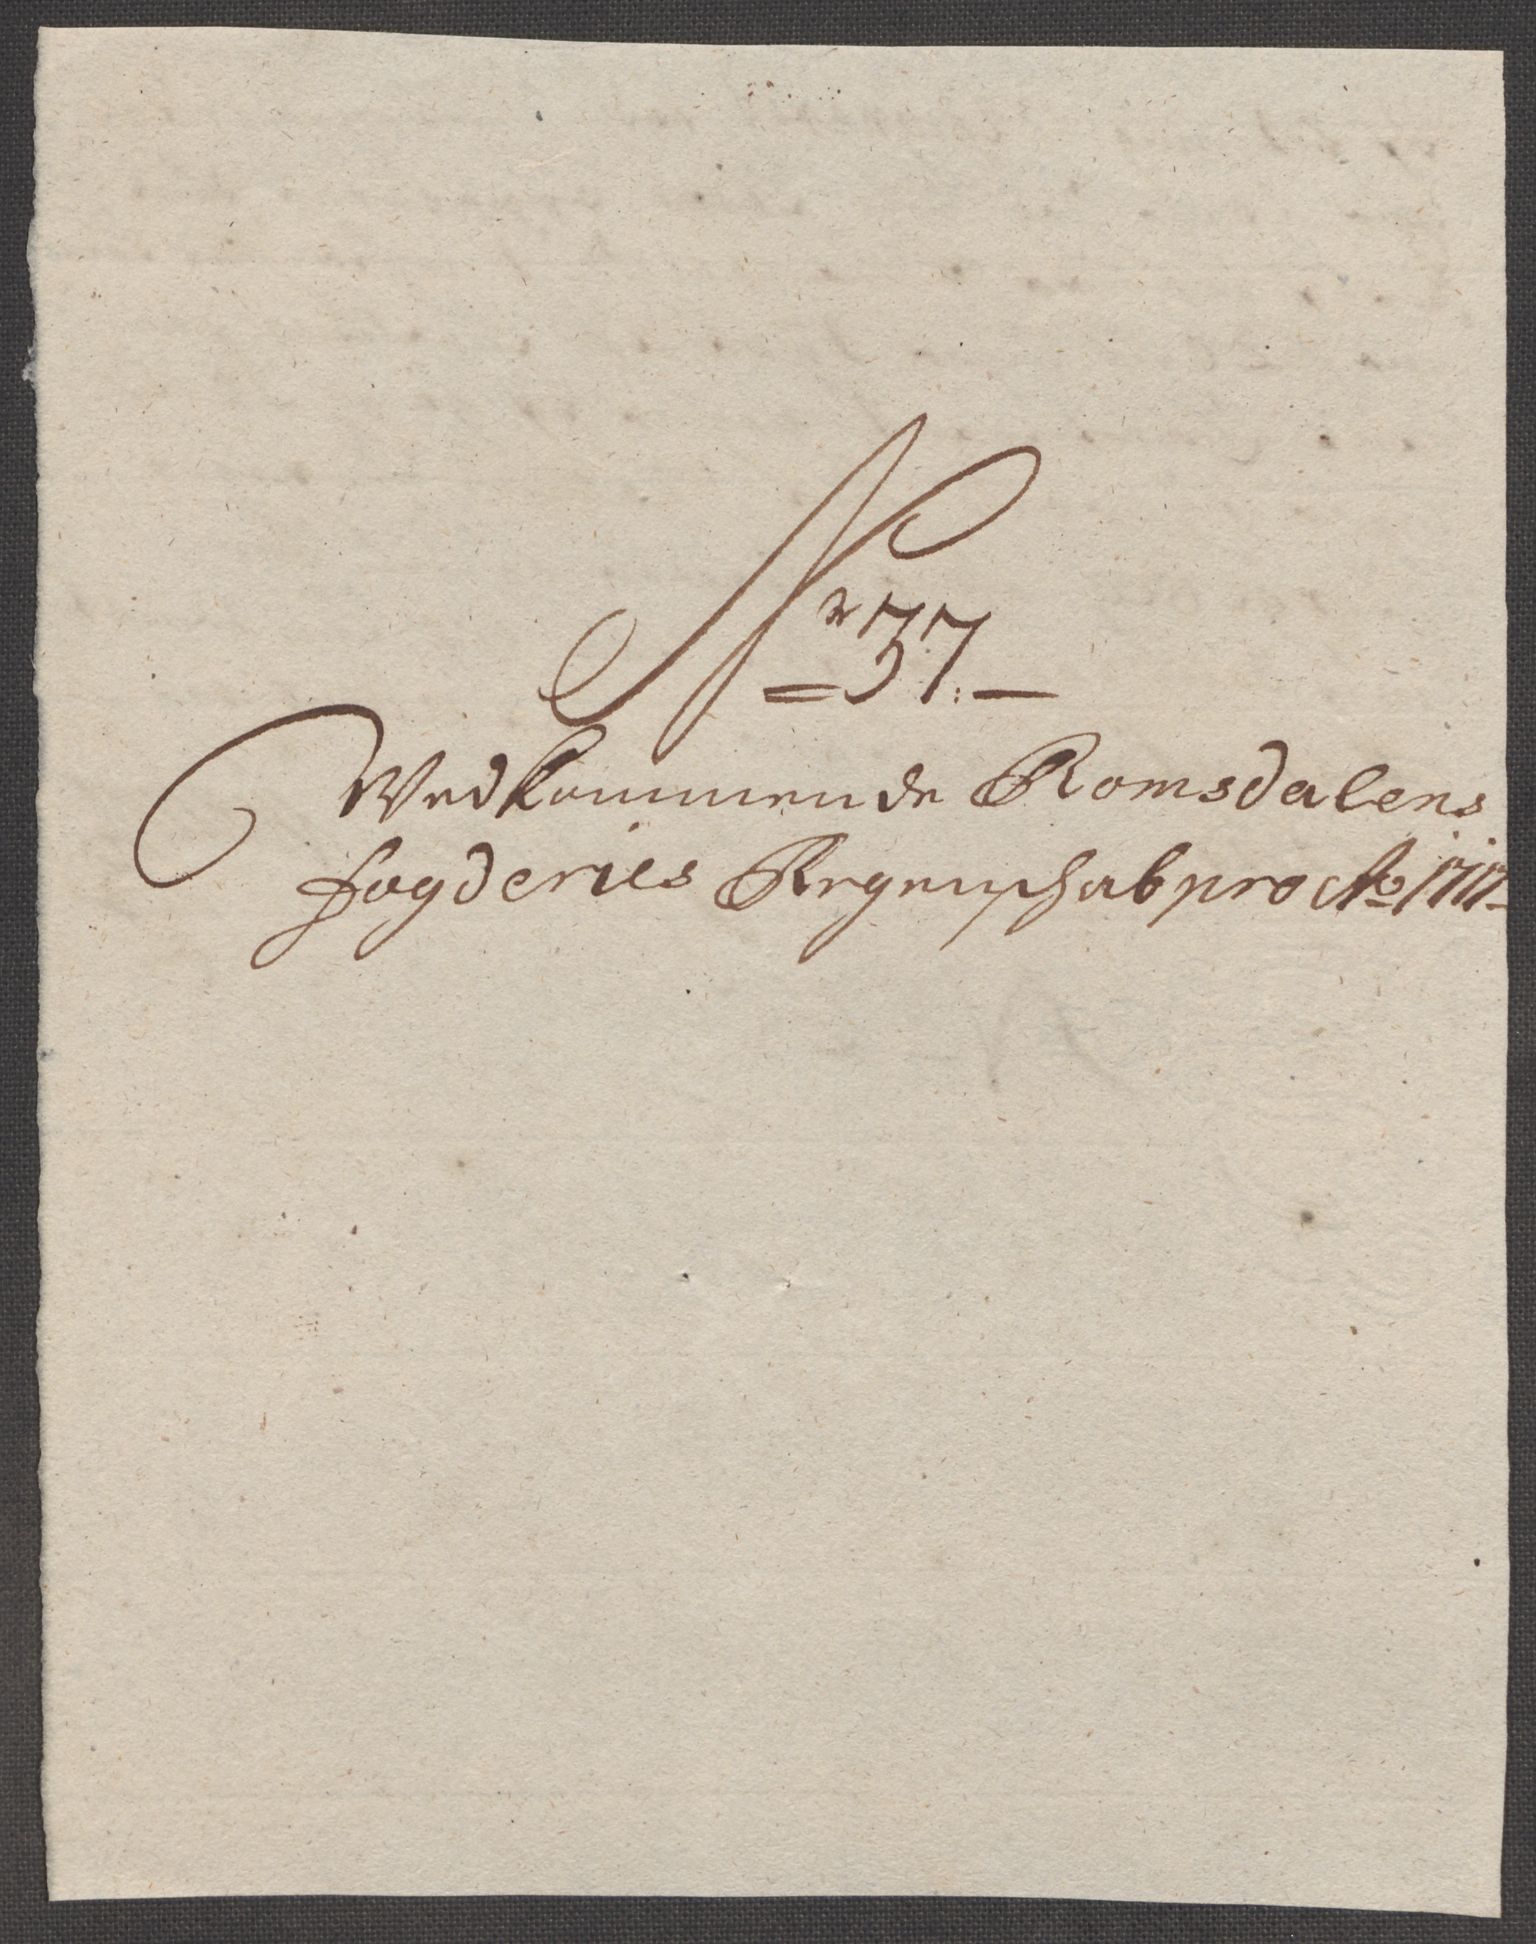 Nr 37.
Wedkommende Romsdalens
fogderies Regenschab pro Ao 1717